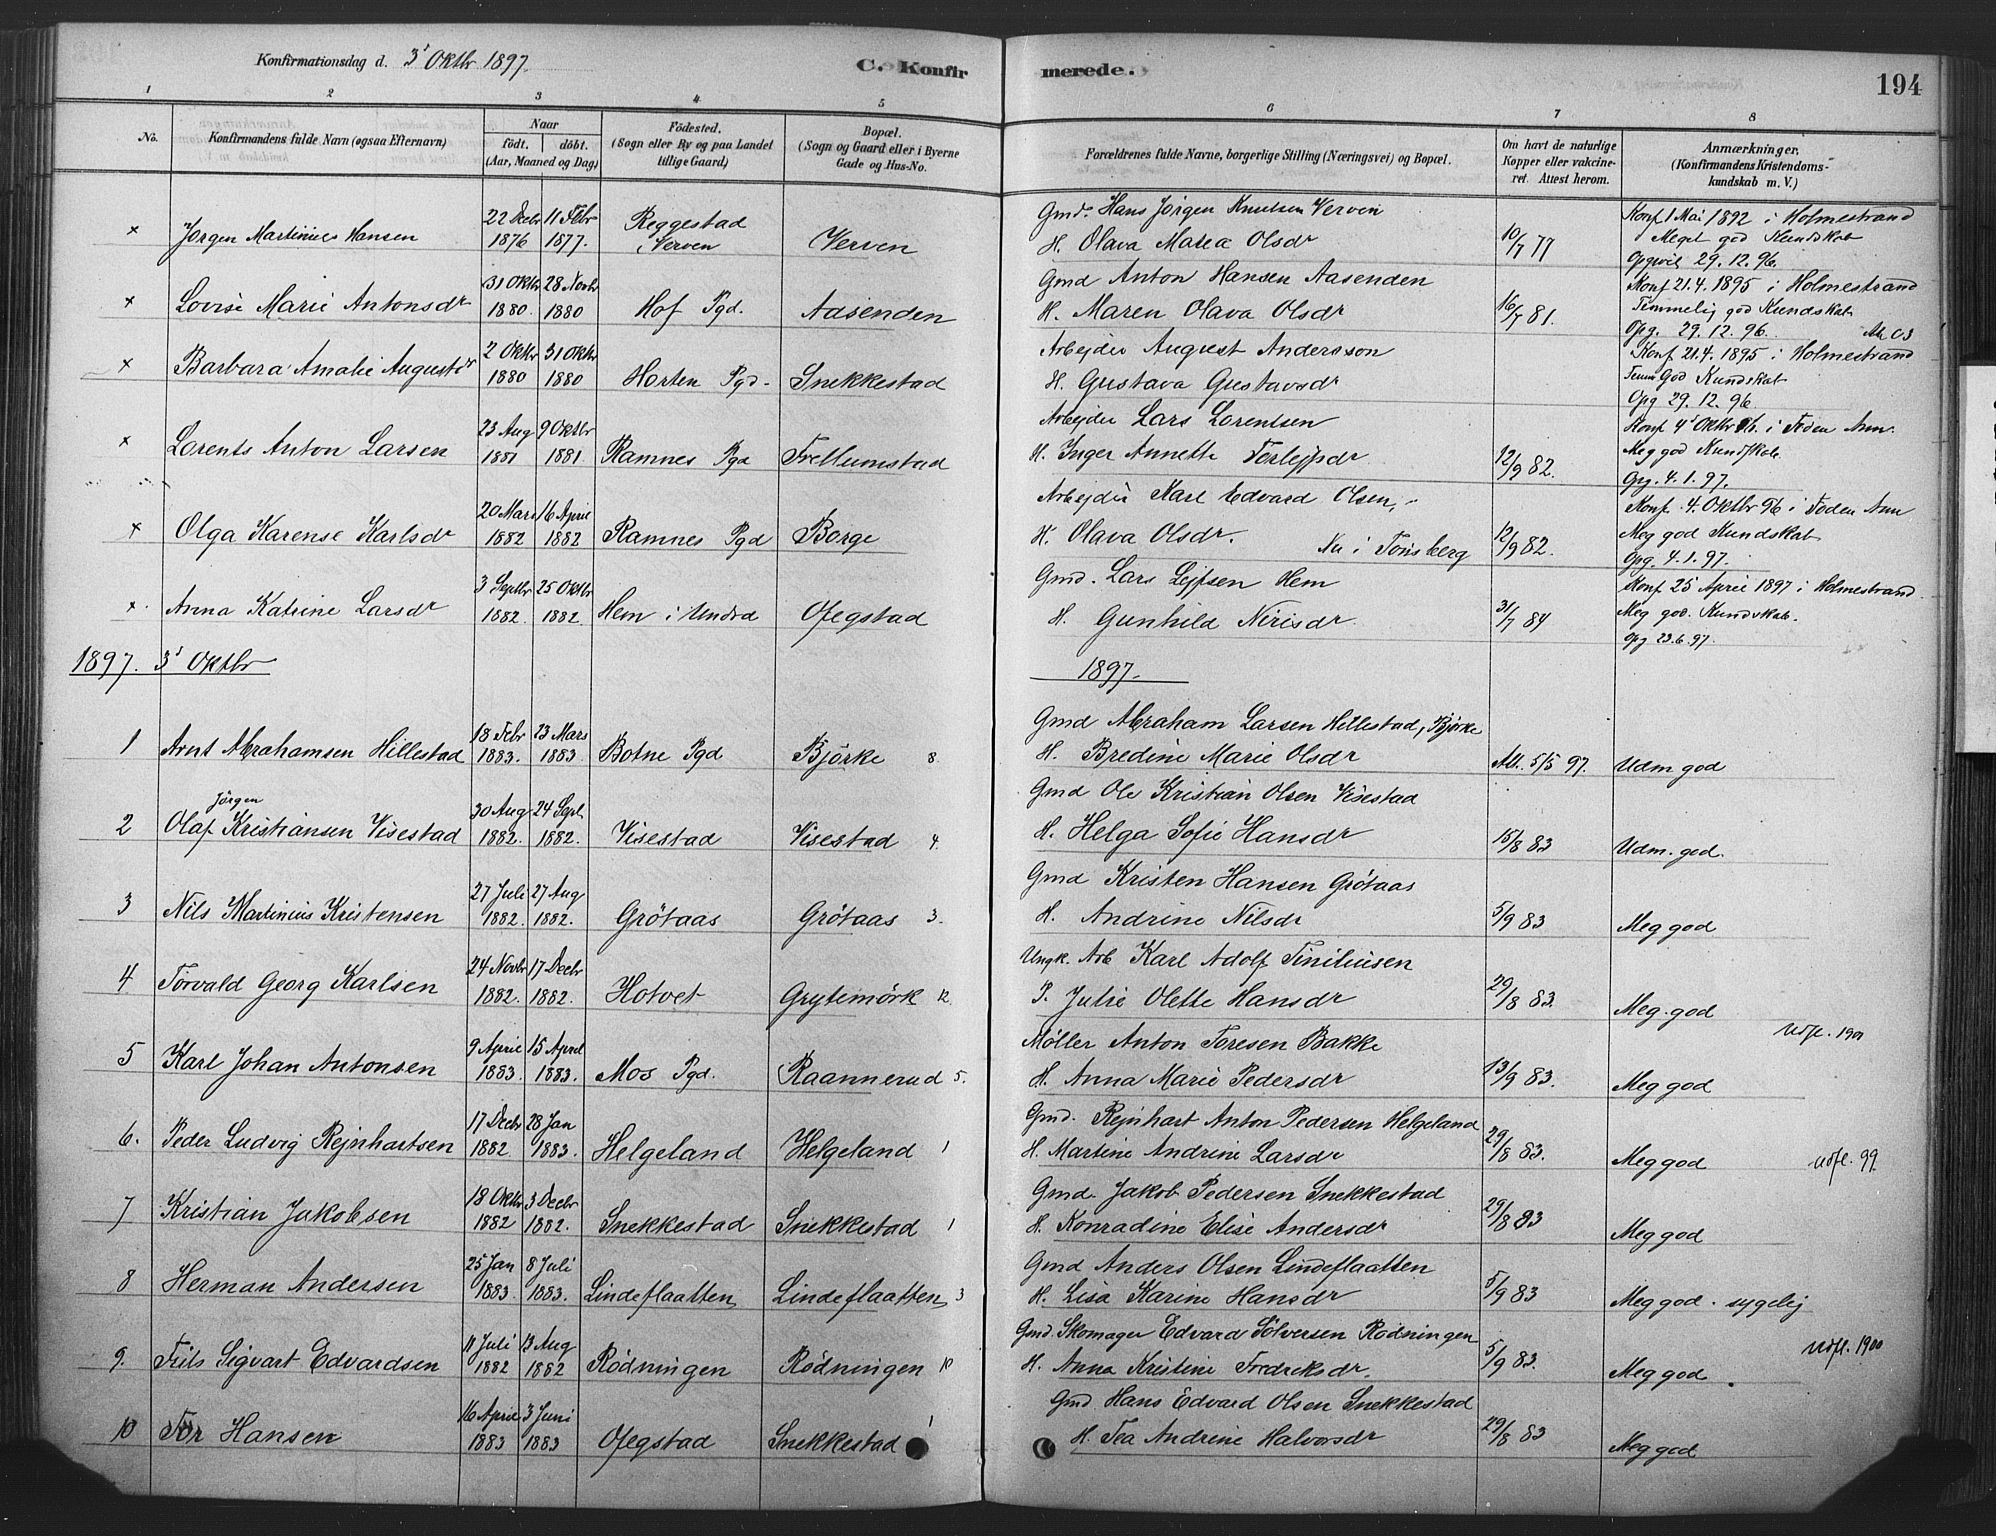 Konfirmationsdag d. 3' Oktbr 1897.
C. Konfirmerede.
194
1 2 3 4 5 6 7 8
No. Konfirmandens fulde Navn (ogsaa Efternavn) Naar födt. döbt. (Aar, Moaned og Dag) Födested. (Sogn eller By og paa Landet tillige Gaard) Bopæl. (Sogn og Gaard eller i Byerne Gade og Hus-No. Forældrenes fulde Navne, borgerlige Stilling (Næringsvei) og Bopæl. Om havt de naturlige Kopper eller vakcineret. Attest herom. Anmærkninger. (Konfirmandens Kristendomskundskab m. V.)
x Jørgen Martinius Hansen 22 Decbr 1876 11 Febr 1877. Reggestad Verven Verven Gmd. Hans Jörgen Knutsen Verven H. Olava Maria Olsdr 10/7 77 Konf 1 Mai 1892 i Holmestrand Meget god Kundskab Opgivet 29.12.96.
x Lovise Marie Antonsdr 31 Oktbr 1880 28 Novbr 1880 Hof Pgd. Aasenden Gmd Anton Hansen Aasenden H. Maren Olava Olsdr 16/7 81. Konf 21.4.1895 i Holmestrand Temmelig god Kundskab Opg. 29.12.96.
x Barbara Amalie Augustdr 2 Oktbr 1880 31 Oktbr 1880 Horten Pgd. Snekkestad Arbejder August Andersson H. Gustava Gustavsdr Konf 21.4.1895 i Holmestrand Temm God Kundskab Opg 29.12.96
x Lorents Anton Larsen 23 Aug 1881 9 Oktbr 1881 Ramnes Pgd Frellumstad Arbejder Lars Lorentsen H. Inger Annette Torlejfsdr 12/9 82. Konf 4' Oktbr i Foden Ann. Meg god Kundskab. Opg. 4.1.97.
x Olga Karense Karlsdr 20 Mars 1882 16 April 1882 Ramnes Pgd Borge Arbejder Karl Edvard Olsen, H. Olava Olsdr. Nu i Tönsberg 12/9 82. Konf. 4. Oktbr 96 i Foden Ann Meg god Kundskab Opg. 4.1.97.
x. Anna Katrine Larsdr 3 Septbr 1882. 25 Oktbr 1882 Hem i Undrd Ofegstad Gmd. Lars Lejfsen Hem H. Gunhild Nirisdr. 31/7 84 Konf 25 April 1897 i Holmestrand. Meg god. Kundskab. Opg 23.6.97.
1897. 3' Oktbr 1897.
1 Arnt Abrahamsen Hillestad 18 Febr 1883. 23 Mars 1883 Botne Pgd Björke 8. Gmd Abraham Larsen Hillestad, Björke H. Bredine Marie Olsdr Att. 5/5 97. Udm god
2 Olaf Jörgen Kristiansen Visestad 30 Aug 1882. 24 Sept 1882. Visestad Visestad 4. Gmd Ole Kristian Olsen Visestad H. Helga Sofie Hansdr 15/8 83 Udm. god.
3 Nils Martinius Kristensen 27 Juli 1882. 27 Aug 1882. Grötaas Grötaas 3. Gmd Kristen Hansen Grötaas H. Andrine Nilsdr 5/9 83 Meg god
4 Torvald Georg Karlsen 24 Novbr 1882. 17 Decbr 1882. Hotvet Grytemörk 12. Ungk. Arb Karl Adolf Tiniliusen P. Julie Olette Hansdr 29/8 83. Meg. god
5 Karl Johan Antonsen 9 April 1883. 15 April 1883. Mos Pgd. Raannerud 5. Møller Anton Toresen Bakke H. Anna Marie Pedersdr 13/9 83. Meg god Udfl. 1900
6. Peder Ludvig Rejnhartsen 17 Decbr 1882 28 Jan 1883. Helgeland Helgeland 1 Gmd. Rejnhart Anton Pedersen Helgeland H. Martine Andrine Larsdr 29/8 83. Meg god Udfl. 99.
7 Kristian Jakobsen 18 Oktbr 1882 3 Decbr 1882. Snekkestad Snekkestad 1 Gmd. Jakob Pedersen Snekkestad H. Konradine Elise Andersdr 29/8 83 Meg god
8 Herman Andersen 25 Jan 1883 8 Juli 1883. Lindeflaatten Lindeflaatten 3 Gmd Anders Olsen Lindeflaatten H. Lisa Karine Hansdr 5/9 83 Meg god. sygelig
9. Frits Sigvart Edvardsen 11 Juli 1882 13 Aug 1882 Rödningen Rödningen 10 Gmd. Skomager Edvard Sölversen Rödningen H. Anna Kristine Fredreksdr. 5/9 83. Meg god. Udfl. 1900
10 Tor Hansen 16 April 1883 3 Juni 1883 Ofegstad Snekkestad 1 Gmd. Hans Edvard Olsen Snekkestad H. Tea Andrine Halvorsdr 29/8 83 Meg god